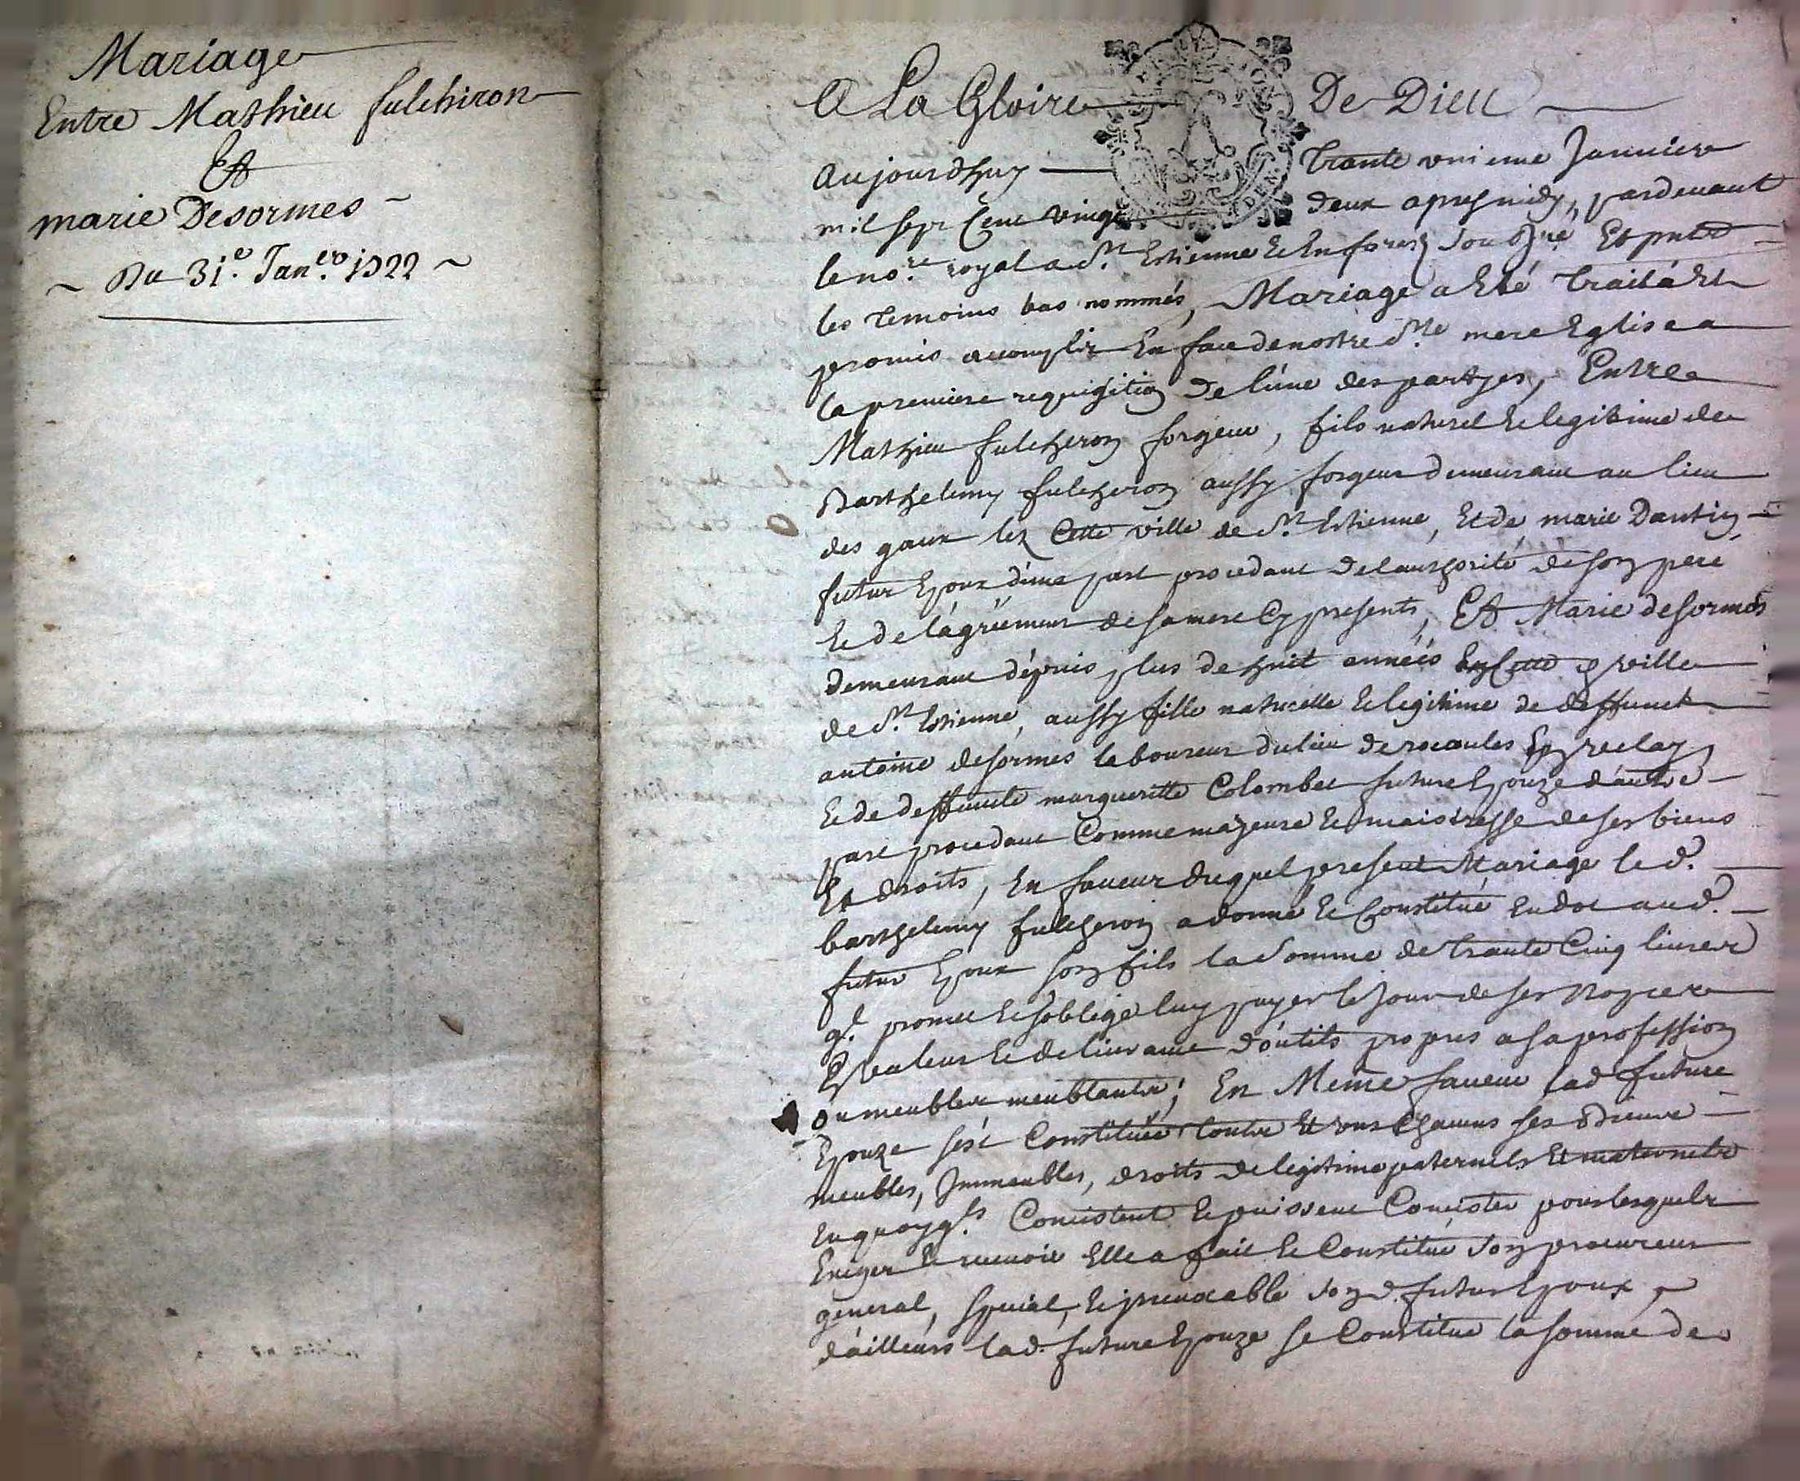 Mariage
Entre Mathieu fulchiron
Et
marie Desormes
Du 31.e Jan.ero 1722
A La Gloire De Dieu
Aujourdhuy trante unieme Janvier
mil sept cent vingt deux apres midy, pardevant
le no.re royal a S.t Estienne en forez sousigné Et
les temoins bas nommés, Mariage a Eté traité Et
promis accomplir En face de nostre S.te mere Eglise a
la premiere requisition de l'une des partyes, Entre
Mathieu fulcheron forgeur, fils naturel Et legitime de
Barthelemy fulcheron aussy forgeur demeurant au lieu
des gaux lez Cette ville de S.t Estienne, Et de marie Dantin
futur Epoux d'une part procedant de l'authorité de son pere
Et de l'agréement de sa mere Cy presents, Et Marie desormes
demeurant dépuis plus de huit années En Cette ville
de S.t Estienne, aussy fille naturelle Et legitime de deffunct
antoine desormes laboureur du lieu de en velay
Et de deffuncte margueritte Colombet future Epouze d'autre
part procedant Comme majeure Et maistresse de ses biens
Et droits, En faveur duquel present Mariage le d.
barthelemy fulcheron a donné Et Constitué En dot aud.
futur Epoux son fils la somme de trante Cinq livres
q.l promet Et s'oblige luy payer le jour de ses nopces
En valeur Et delivrance d'outils propres a sa profession
ou meubles meublants; En Meme faveur lad. future
Epouze s'est Constituée touts Et uns Chacuns ses
meubles, Immeubles, droits de legitime paternels Et maternels
En quoy q.ls Consistent Et puissent Consister pour lesquels
Exiger Et recevoir Elle a fait Et Constitué son procureur
general, special, Et irrevocable son d. futur Epoux,
d'ailleurs lad. future Epouze se Constitue la somme de